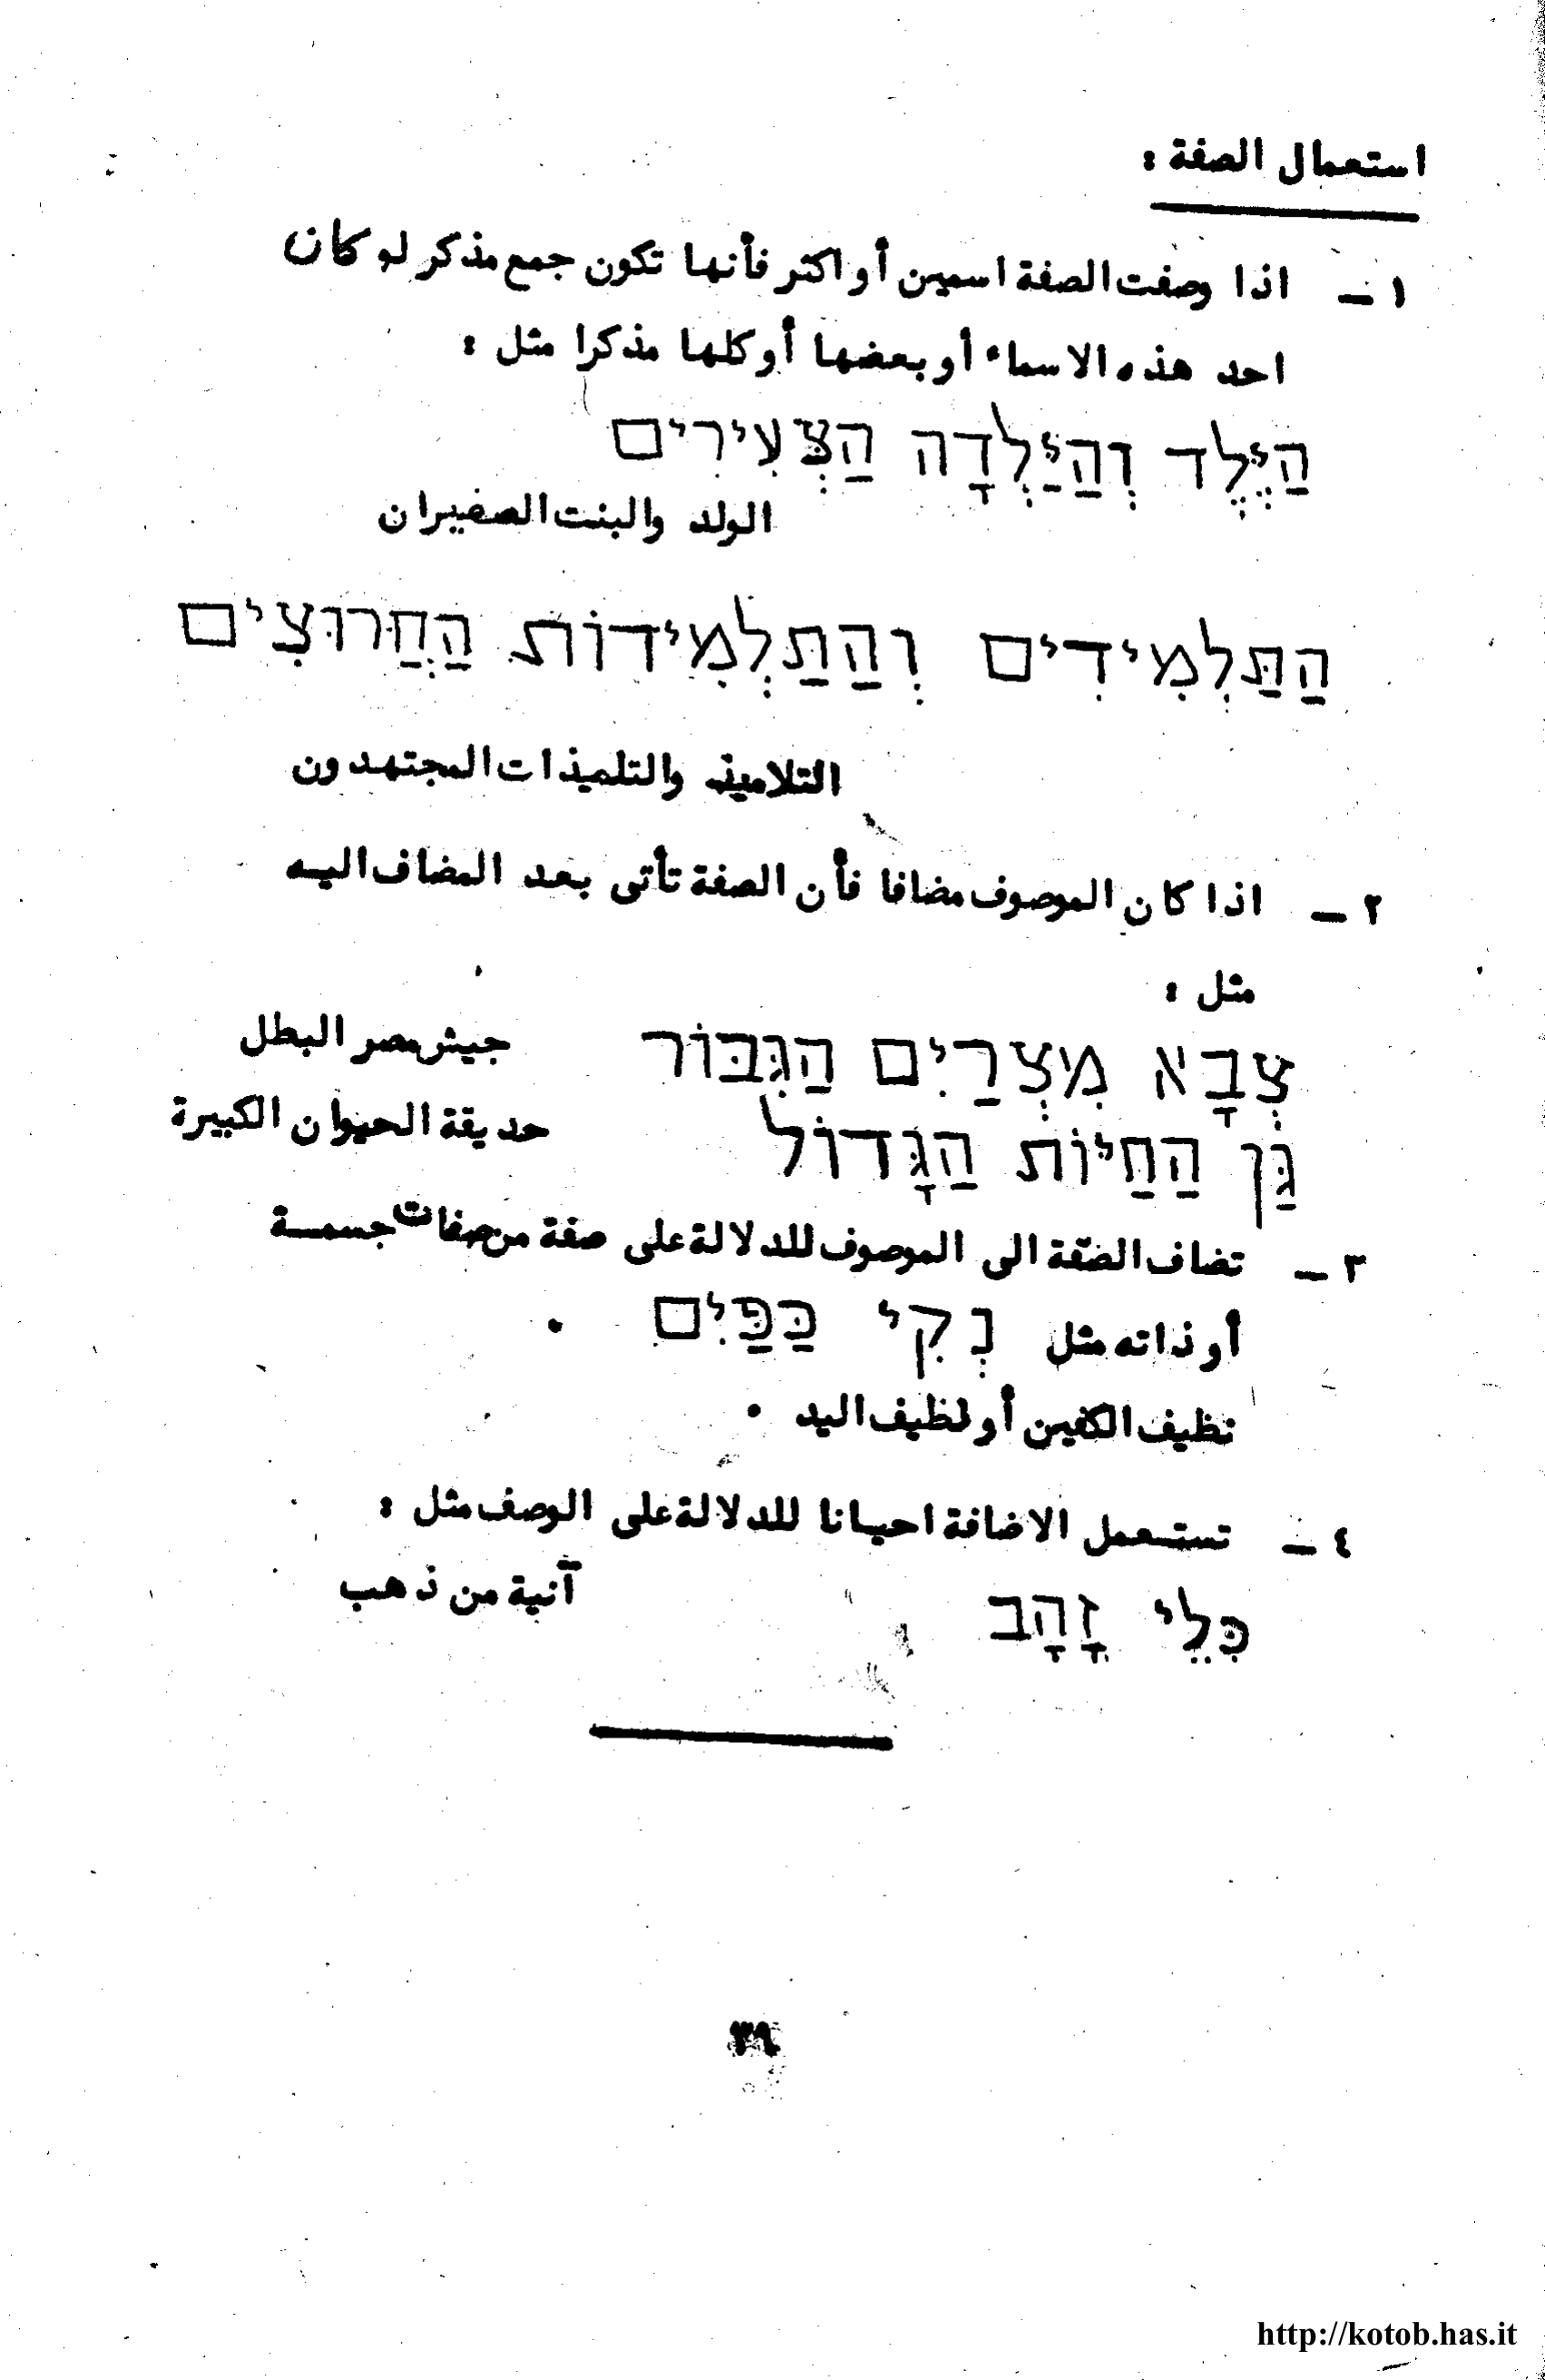 استعمال الصفة :
١ — اذا وصفت الصفة اسمين أو اكثر فأنها تكون جمع مذكر لو كان
احد هذه الاسماء أو بعضها أو كلها مذكرا مثل :
הַיֶּלֶד וְהַיַּלְדָה הַצְּעִירִים
الولد والبنت الصغيران
הַתַּלְמִידִים וְהַתַּלְמִידוֹת הַחֲרוּצִים
التلاميذ والتلميذات المجتهدون
٢ — اذا كان الموصوف مضافا فأن الصفة تأتى بعد المضاف اليه
مثل :
צְבָא מִצְרַיִם הַגִּבּוֹר جيش مصر البطل
גַּן הַחַיּוֹת הַגָּדוֹל حديقة الحيوان الكبيرة
٣ — تضاف الصفة الى الموصوف للدلالة على صفة من صفات جسمة
أو ذاته مثل נְקִי כַּפַּיִם .
نظيف الكفين أو نظيف اليد .
٤ — تستعمل الاضافة احيانا للدلالة على الوصف مثل :
כְּלֵי זָהָב آنية من ذهب
٣٩
http://kotob.has.it